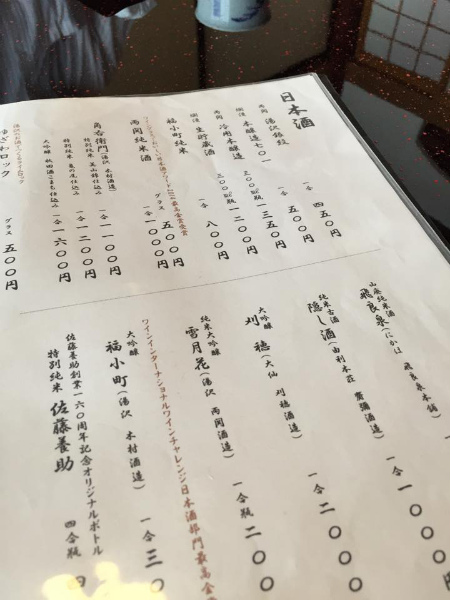 日本酒
両関 湯沢 一合 四五〇円
両関 本醸造 一合 五〇〇円
爛漫 本醸造七〇一 一合 五〇〇円
両関 冷用本醸造 三〇〇ml瓶 一三五〇円
爛漫 生貯蔵酒 三〇〇ml瓶 一二〇〇円
福小町 純米 一合 八〇〇円
両関 純米酒 グラス 五〇〇円
一合 一〇〇〇円
角右衛門(湯沢 木村酒造)
特別純米 一合 一一〇〇円
特別純米 美の木仕込み 一合 一二〇〇円
大吟醸 秋田酒こまち仕込み 一合 一六〇〇円
グラス 五〇〇円
山廃純米酒 飛良泉(にかほ 飛良泉本舗) 一合 一〇〇〇
純米古酒 隠し酒(由利本荘 齋彌酒造) 一合 二〇〇〇
大吟醸 刈穂(大仙 刈穂酒造) 一合瓶 二〇〇
純米大吟醸 雪月花(湯沢 両関酒造)
ワインインターナショナルワインチャレンジ日本酒部門最高金
大吟醸 福小町(湯沢 木村酒造) 一合 三〇
佐藤養助創業一六〇周年記念オリジナルボトル
特別純米 佐藤養助 四合瓶